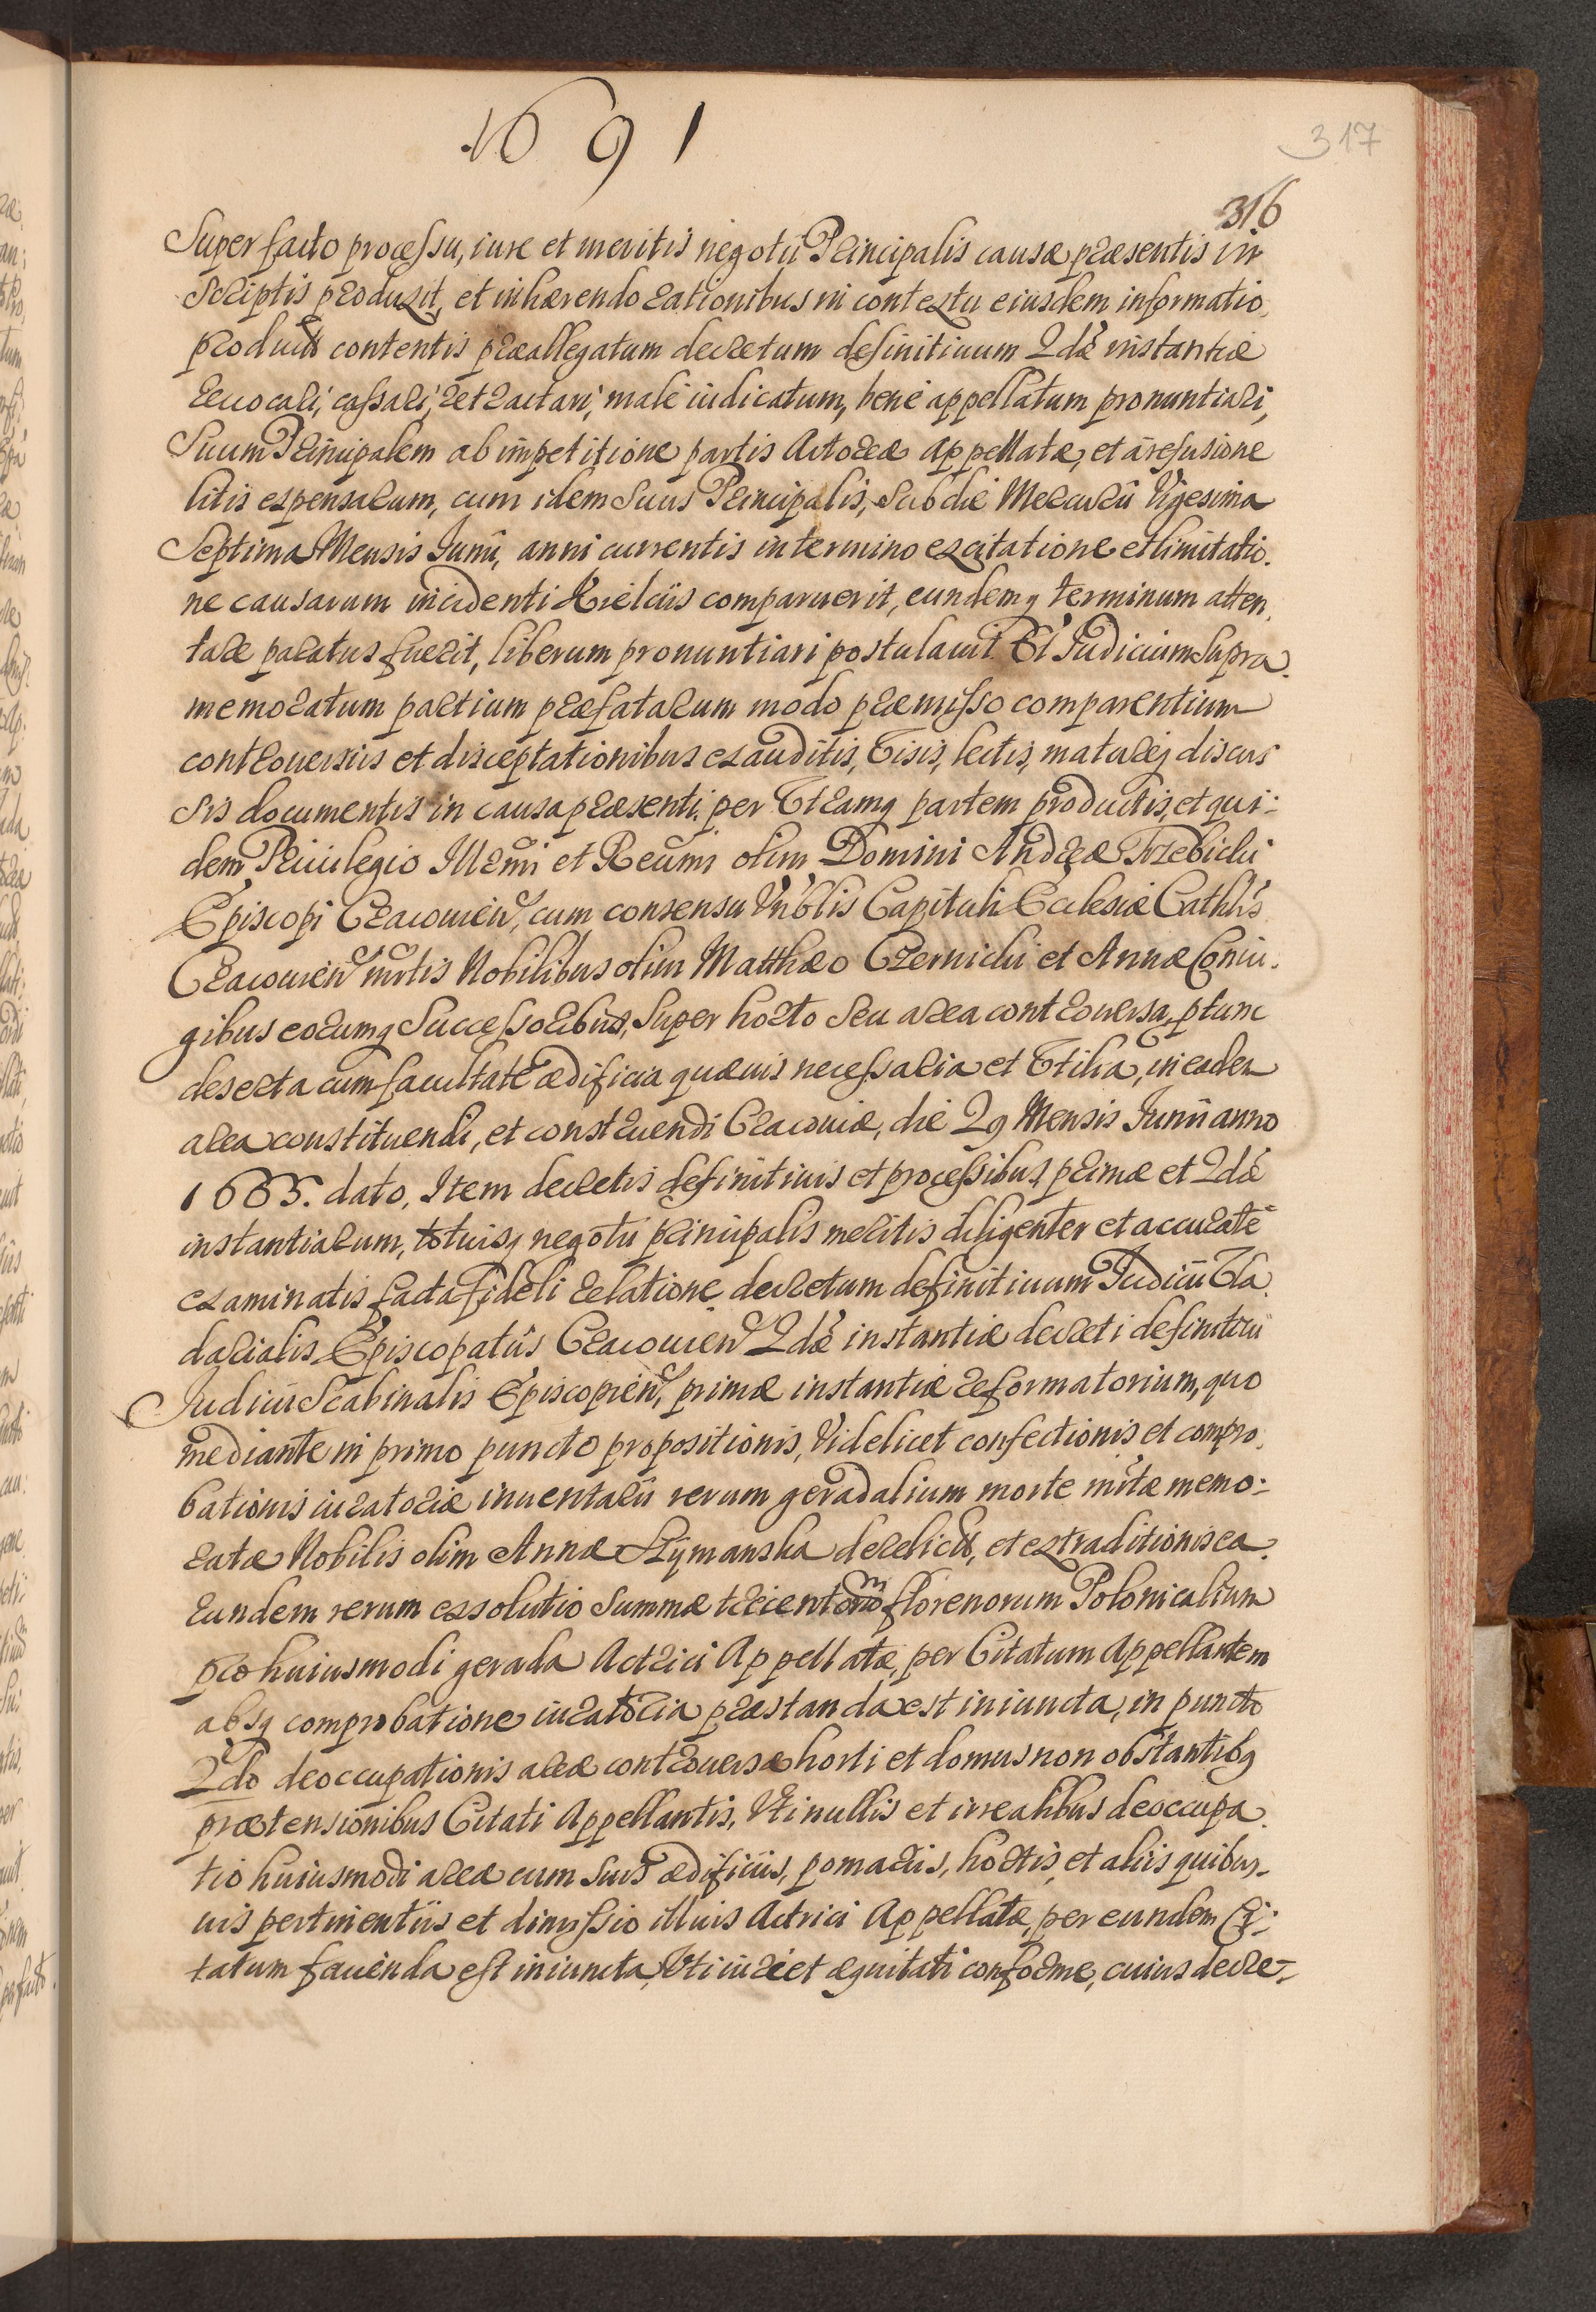 1691
317
316
Super facto processu, iure et meritis negotii Principalis causæ præsentis in
Scriptis produxit, et inhærendo rationibus in contextu eiusdem informatio.
productis contentis præallegatum decretum definitiuum 2dæ instantiæ
reuocari, cassari, retractari, male iudicatum, bene appellatum pronuntiari,
Suum Principalem ab impetitione partis Actoreæ Appellatæ, et à refusione
litis expensarum, cum idem Suus Principalis, Sub die Mercurii Vigesima
Septima Mensis Junii, anni currentis in termino ex citatione et limitatio.
ne causarum incidenti Kielciis comparuerit, eundemq terminum atten,
tare paratus fuerit, liberum pronuntiari postulauit. Et Judicium Supra.
memoratum partium præfatarum modo præmisso comparentium
controuersiis et disceptationibus exauditis, Visis, lectis, matureq discus
sis documentis in causa præsenti per Vtramq partem productis, et qui:
dem Priuilegio Illrmi et Reumi olim Domini Andreæ Trzebicki
Episcopi Cracouien, cum consensu Vnblis Capituli Ecclesiæ Cathlis
Cracouien nrtis Nobilibus olim Matthæo Czernicki et Annæ Coniu.
gibus eorumq Successoribus, Super horto Seu area controuersa, ptunc
deserta cum facultate ædificia quæuis necessaria et Vtilia, in eadem
area constituendi, et construendi Cracouiæ, die 29 Mensis Junii anno
1665. dato, Item decretis definitiuis et processibus primæ et 2dæ
instantiarum, totiusq negotii principalis meritis diligenter et accuratè
examinatis facta fideli relatione decretum definitiuum Judicii Vla.
darialis Episcopatûs Cracouien 2dæ instantiæ decreti definitiui
Judicii Scabinalis Episcopien, primæ instantiæ reformatorium, quo
mediante in primo puncto propositionis, Videlicet confectionis et compro.
bationis iuratoriæ inuentarii rerum geradalium morte mrtæ memo:
ratæ Nobilis olim Annæ Szymanska derelictis, et extraditionis ea.
rundem rerum exsolutio Summæ tricentorum florenorum Polonicalium
pro huiusmodi gerada Actrici Appellatæ, per Citatum Appellantem
absq comprobatione iuratoria præstanda est iniuncta, in puncto
2do deoccupationis areæ controuersæ horti et domus non obstantibq
prætensionibus Citati Appellantis, Vti nullis et irrealibus deoccupa.
tio huiusmodi areæ cum Suis ædificiis, pomariis, hortis, et aliis quibus-
uis pertinentiis et dimissio illius Actrici Appellatæ, per eundem Ci:
tatum facienda est iniuncta, Vti iuri et æquitati conforme, cuius decre-